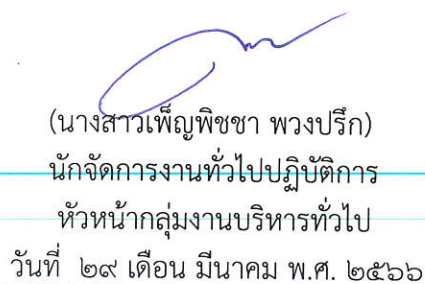 (นางสาวเพ็ญพิชชา พวงปรึก)
นักจัดการงานทั่วไปปฏิบัติการ
หัวหน้ากลุ่มงานบริหารทั่วไป
วันที่ ๒๙ เดือน มีนาคม พ.ศ. ๒๕๖๖